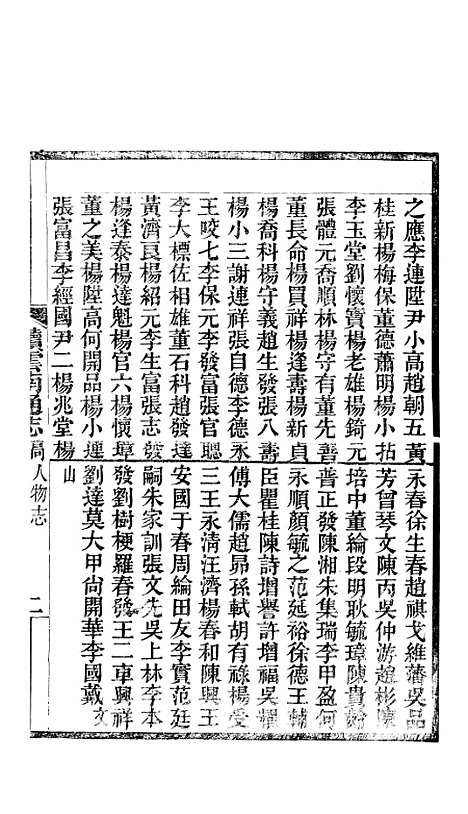 之應李連陞尹小高趙朝五黃永春徐生春趙祺戈維藩吳品
桂新楊梅保董德蕭明楊小拈芳曾琴文陳丙吳仲游趙彬
李玉堂劉懷寶楊老雄楊錡元培中董綸段明耿毓璋陳貴
張體元喬順林楊守有董先善普正發陳湘朱集瑞李甲盈何
董長命楊買祥楊逢壽楊新貞永順顏毓之范延裕徐德王輔
楊喬科楊守義趙生發張八壽臣瞿桂陳詩增譽許增福吳耀
楊小三謝連祥張自德李德永傅大儒趙昴孫軾胡有祿楊受
王咬七李保元李發富張官聰三王永淸汪濟楊春和陳興王
李大標佐相雄董石科趙發達安國于春周綸田友李實范廷
黃濟良楊紹元李生富張志發嗣朱家訓張文先吳上林李本
楊逢泰楊達魁楊官六楊懷璋發劉樹梗羅春發王二車興祥
董之美楊陞高何開品楊小連劉達莫大甲尙開華李國戴文
張富昌李經國尹二楊兆堂楊山
續雲南通志稿 人物志 二